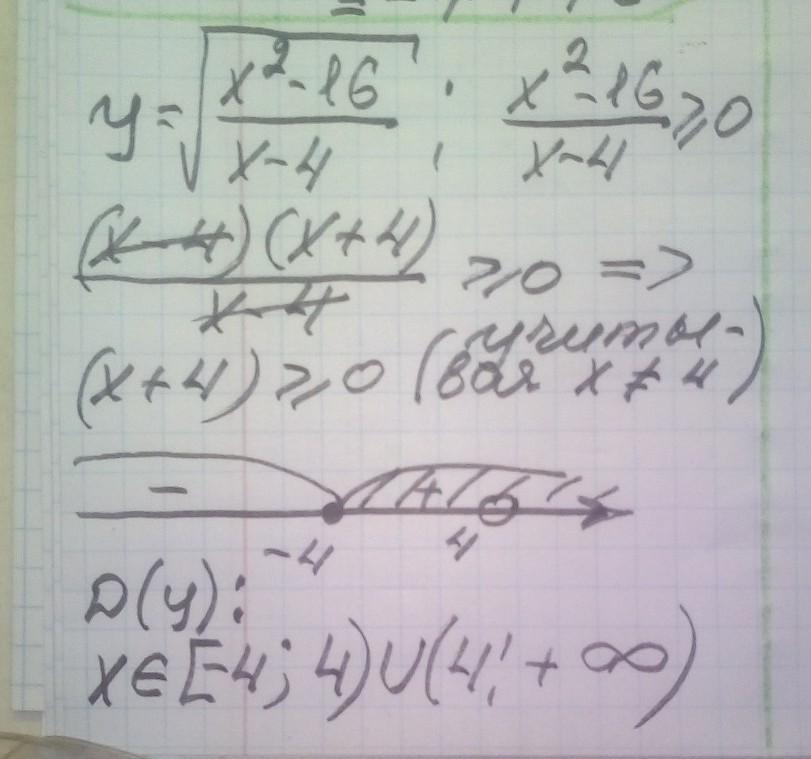 y = √((x² - 16)/(x - 4)) ; (x² - 16)/(x - 4) ⩾ 0
((x - 4)(x + 4))/(x - 4) ⩾ 0 =>
(x + 4) ⩾ 0 (учиты-
вая x ≠ 4)
- +
-4 4
D(y):
x ∈ [-4; 4) ∪ (4; + ∞)